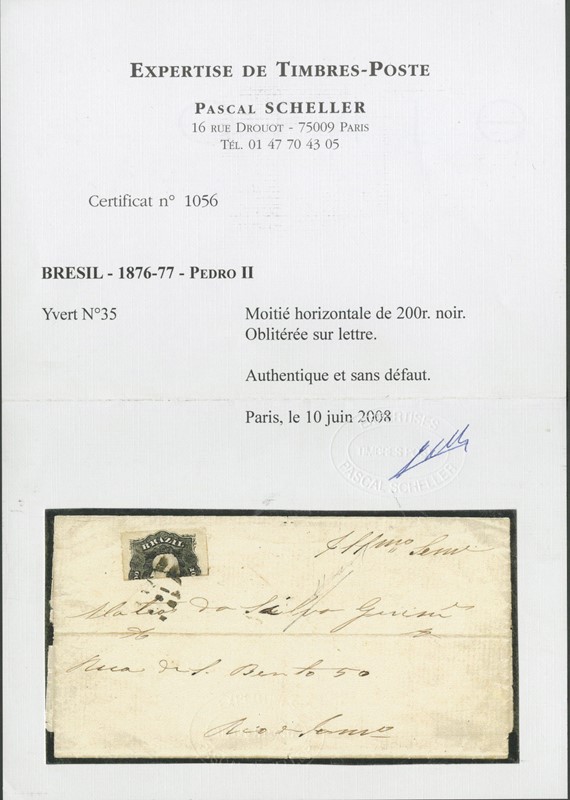 EXPERTISE DE TIMBRES-POSTE
PASCAL SCHELLER
16 RUE DROUOT - 75009 PARIS
TÉL. 01 47 70 43 05
Certificat n° 1056
BRESIL - 1876-77 - PEDRO II
Yvert N°35
Moitié horizontale de 200r. noir.
Oblitérée sur lettre.
Authentique et sans défaut.
Paris, le 10 juin 2008
EXPERTISES
PASCAL SCHELLER
BRAZIL
da Silva
Rua de S. Bento 50
Rio de